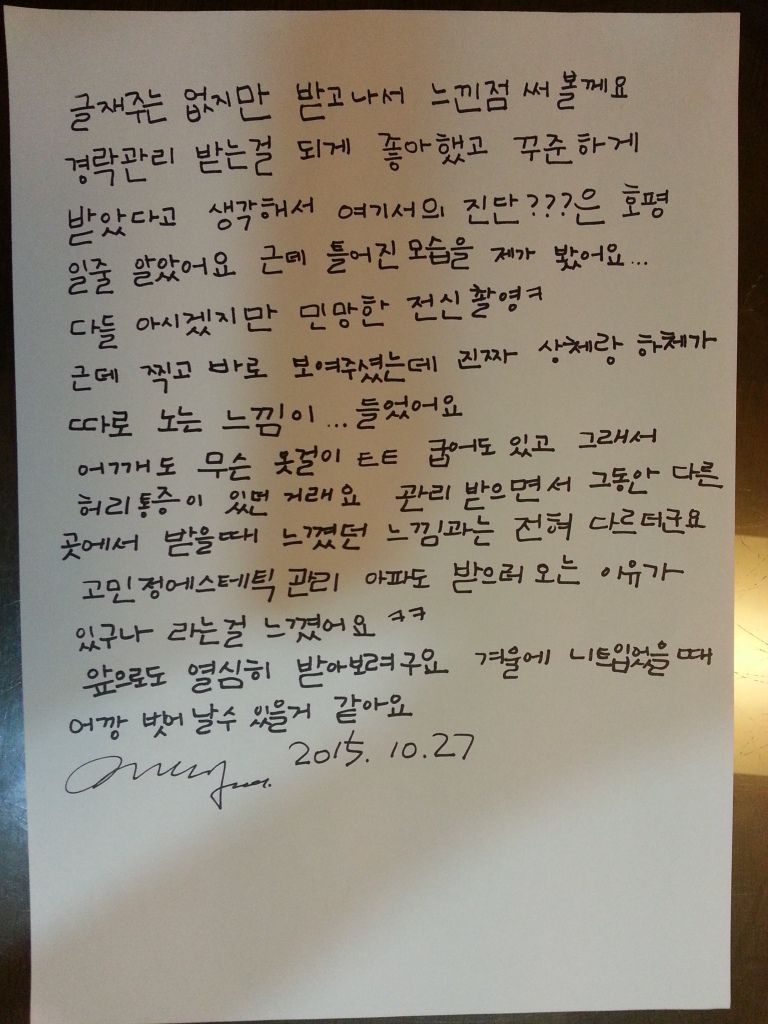 글재주는 없지만 받고나서 느낀점 써 볼께요
경락관리 받는걸 되게 좋아했고 꾸준하게
받았다고 생각해서 여기서의 진단???은 호평
일줄 알았어요 근데 틀어진 모습을 제가 봤어요...
다들 아시겠지만 민망한 전신촬영ㅋ
근데 찍고 바로 보여주셨는데 진짜 상체랑 하체가
따로 노는 느낌이... 들었어요
어깨도 무슨 옷걸이 ㅌㅌ 굽어도 있고 그래서
허리통증이 있던 거래요 관리 받으면서 그동안 다른
곳에서 받을때 느꼈던 느낌과는 전혀 다르더군요
고민정에스테틱 관리 아파도 받으러 오는 이유가
있구나 라는걸 느꼈어요 ㅋㅋ
앞으로도 열심히 받아보려구요 겨울에 니트입었을때
어깡 벗어 날수 있을거 같아요
2015. 10.27